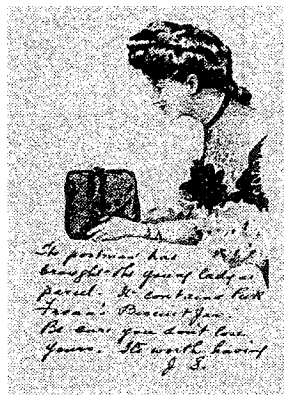 The postman has
brought the young lady a
parcel. It contains Peek
Frean's Biscuit Jar.
Be sure you don't lose
yours. It's worth having
J. S.